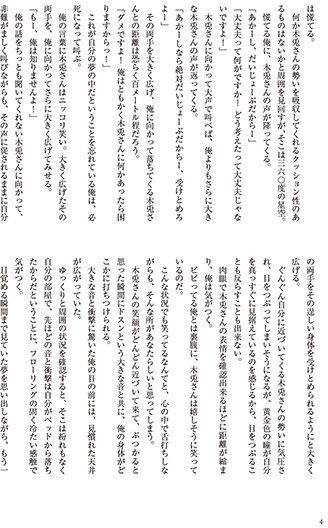 は慌てる。
　何か木兎さんの勢いを吸収してくれるクッション性のあ
るものはないかと周囲を見回すが、そこは三六〇度の星空。
慌てる俺に、木兎さんの声が降ってくる。
「あかーしー！だいじょーぶだからー！」
「大丈夫って何がですか！どう考えたって大丈夫じゃな
いですよ！」
　木兎さんに向かって大声で叫べば、俺よりもさらに大き
な木兎さんの声が返ってくる。
「あかーしなら絶対だいじょーぶだからー！、受けとめろ
ー！」
　その両手を大きく広げ、俺に向かって落ちてくる木兎さ
んとの距離は恐らく百メートル程だろう。
「ダメですよ！　俺はともかく木兎さんに何かあったら困
りますからっ！」
　これが自分の夢の中だということを忘れている俺は、必
死になって叫ぶ。
　俺の言葉に木兎さんはニッコリ笑い、大きく広げたその
両手を、俺に向かってさらに大きく広げてみせる。
「もー！、俺は知りませんよー！」
　俺の話をちっとも聞いてくれない木兎さんに向かって、
非難がましく叫びながらも、その声に促されるままに自分
の両手をその逞しい身体を受けとめられるようにと大きく
広げる。
　ぐんぐん自分に近づいてくる木兎さんの勢いに気圧さ
れ、目をつぶってしまいそうになるが、黄金色の瞳が自分
を真っすぐに見据えているのを感じるから、目をつぶるこ
とも反らすことも出来ない。
　肉眼で木兎さんの表情を確認出来るほどに距離が縮ま
り、俺は気がつく。
　ビビってる俺とは裏腹に、木兎さんは嬉しそうに笑って
いるのだ。
　こんな状況でも笑ってるなんてと、心の中で舌打ちしな
がらも、そんな所があなたらしいと思ってしまう。
　木兎さんの笑顔がどんどん近づいて来て、ぶつかると
思った瞬間にドスンという大きな音と共に、俺の身体がど
こかに打ちつけられる。
　大きな音と衝撃に驚いた俺の目の前には、見慣れた天井
が広がっていた。
　ゆっくりと周囲の状況を確認すると、そこは紛れもなく
自分の部屋で、先ほどの音と衝撃は自分がベッドから落ち
たからだということに、フローリングの固く冷たい感触で
気がつく。
　目覚める瞬間まで見ていた夢を思い出しながら、もう一
4